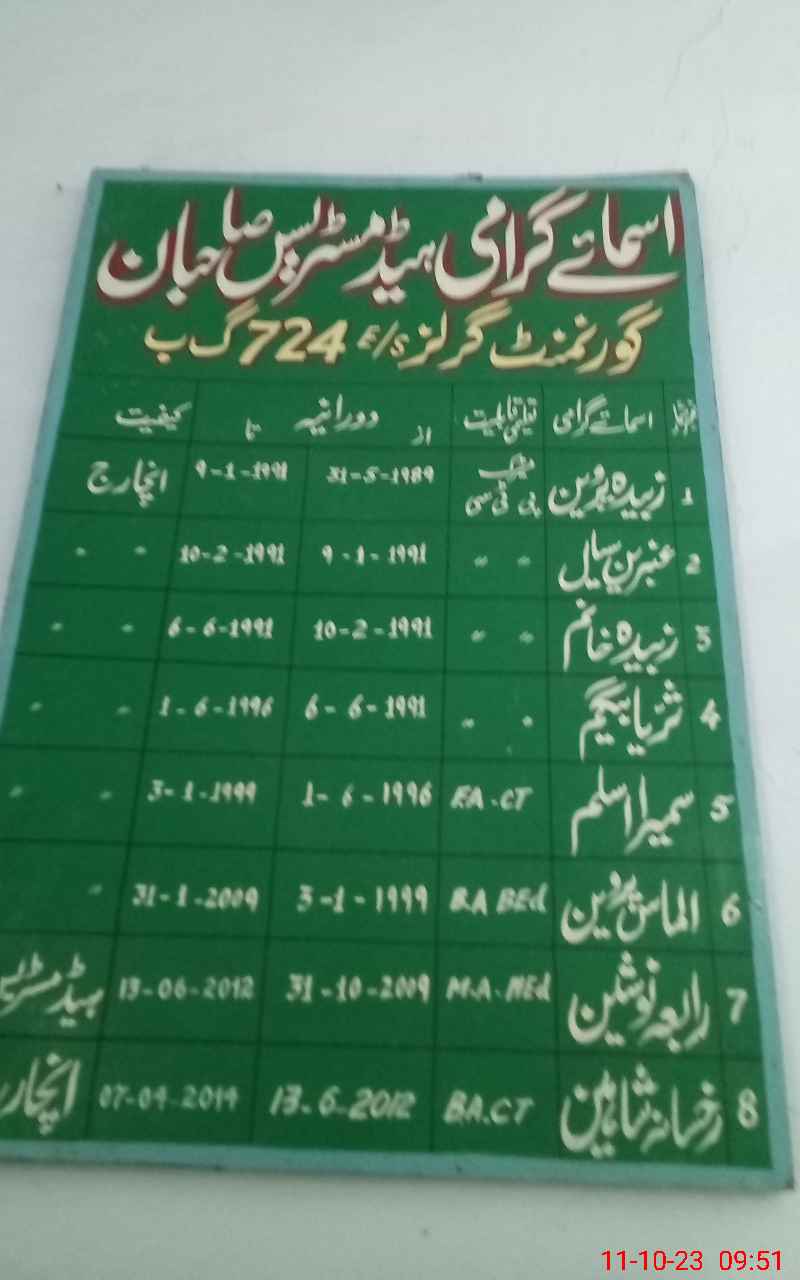 اسمائے گرامی ہیڈ مسٹریس صاحبان
گورنمنٹ گرلز E/S 724 گ ب
نمبر شمار اسمائے گرامی تعلیمی قابلیت از دورانیہ تا کیفیت
1 زبیدہ پروین میٹرک پی ٹی سی 31-5-1989 9-1-1991 انچارج
2 عنبرین سیال " " 9-1-1991 10-2-1991 " "
3 زبیدہ خانم " " 10-2-1991 6-6-1991 " "
4 ثریا بیگم " " 6-6-1991 1-6-1996 " "
5 سمیرا اسلم F.A-CT 1-6-1996 3-1-1999 " "
6 الماس پروین B.A BEd 3-1-1999 31-1-2009 "
7 رابعہ نوشین M.A-MEd 31-10-2009 13-06-2012 ہیڈ مسٹریس
8 رخسانہ شاہین B.A.CT 13-6-2012 07-09-2019
11-10-23 09:51